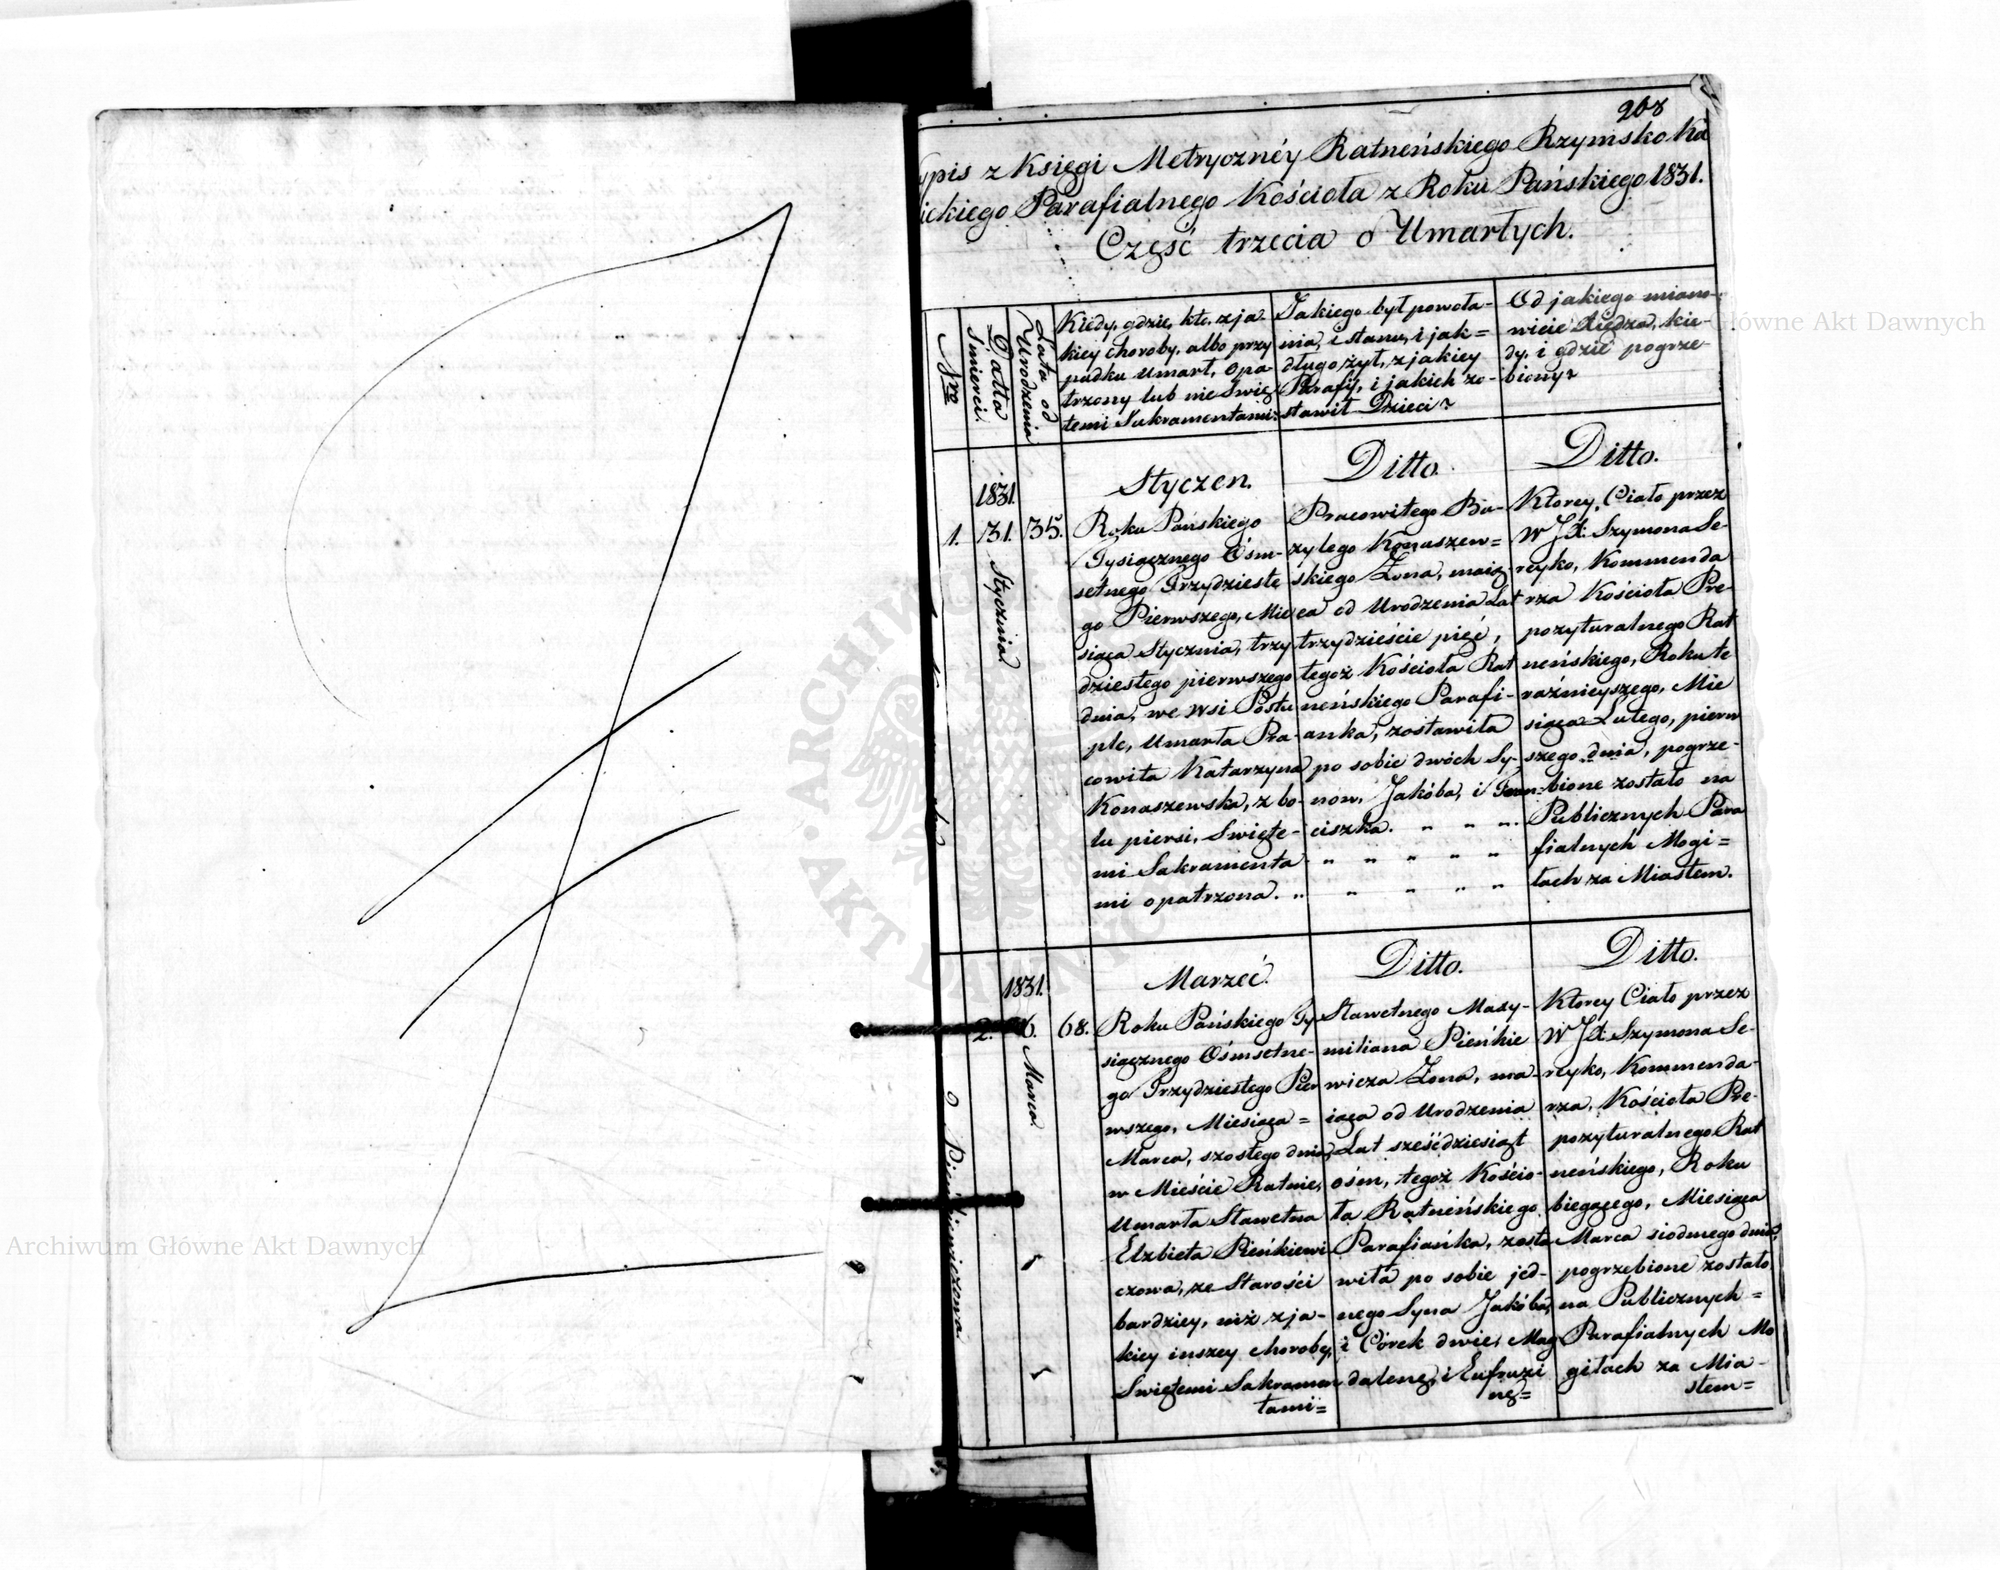 268
ypis z Księgi Metrycznéy Ratneńskiego Rzymsko Ka
ickiego Parafialnego Kościoła z Roku Pańskiego 1831.
Część trzecia o Umarłych.
Nro
Datta Smierci.
Lata od Urodzenia
Kiedy, gdzie, kto, z ja-
kiey choroby, albo przy
padku umarł, opa-
trzony lub nie Swię
temi Sakramentami?
Jakiego był powoła-
nia, i stanu, i jak=
długo żył, z jakiey
Parafij, i jakich zo-
stawił Dzieci?
Od jakiego miano-
wicie Xiędza, kie-
dy, i gdzie pogrze-
biony?
1.
1831.
31.
Stycznia
35.
Styczen.
Roku Pańskiego
Tysiącznego Ośm-
setnego Trzydzieste
go Pierwszego, Mie
siąca Stycznia, trzy
dziestego pierwszego
dnia, we Wsi Postu
ple, Umarła Pra-
cowita Katarzyna
Konaszewska, z bo-
lu piersi, Swięte-
mi Sakramenta
mi opatrzona. „
Ditto.
Pracowitego Ba-
zylego Konaszew=
skiego Zona, maią-
ca od Urodzenia Lat
trzydzieście pięć,
tegoż Kościoła Rat
neńskiego Parafi-
anka, zostawiła
po sobie dwóch Sy-
nów, Jakóba, i Fran-
ciszka. „ „ „
„ „ „ „ „
„ „ „ „
Ditto.
Którey Ciało przez
W JX: Szymona Se-
reyko, Kommenda
rza Kościoła Pre-
pozyturalnego Rat
neńskiego, Roku te
raźnieyszego, Mie
siąca Lutego, pierw
szego dnia, pogrze-
bione zostało na
Publicznych Para
fialnych Mogi=
łach za Miastem.
2.
1831.
6.
Marca
68.
o Pieńkiewiczowa
Marzeć.
Roku Pańskiego Ty
siącznego Ośmsetne-
go Trzydziestego Pier
wszego, Miesiąca =
Marca, szostego dnia,
w Mieście Ratnie,
Umarła Sławetna
Elzbieta Pieńkiewi
czowa, ze Starości
bardziey, niż z ja-
kiey inszey choroby,
Swiętemi Sakramen
tami=
Ditto.
Sławetnego Maxy-
miliana Pieńkie
wicza Zona, ma-
iąca od Urodzenia
Lat sześćdziesiąt
ośm, tegoż Kościo-
ła Ratneńskiego
Parafiańka, zosta
wiła po sobie jed-
nego Syna Jakóba,
i Córek dwie, Mag
dalenę, i Eufrozi
nę=
Ditto.
Którey Ciało przez
W JX: Szymona Se-
reyko, Kommenda-
rza, Kościoła Pre-
pozyturalnego Rat
neńskiego, Roku
biegącego, Miesiąca
Marca siodmego dnia,
pogrzebione zostało,
na Publicznych =
Parafialnych Mo
giłach za Mia-
stem=
Archiwum Główne Akt Dawnych
Główne Akt Dawnych
ARCHIWUM
AKT DAWNYCH